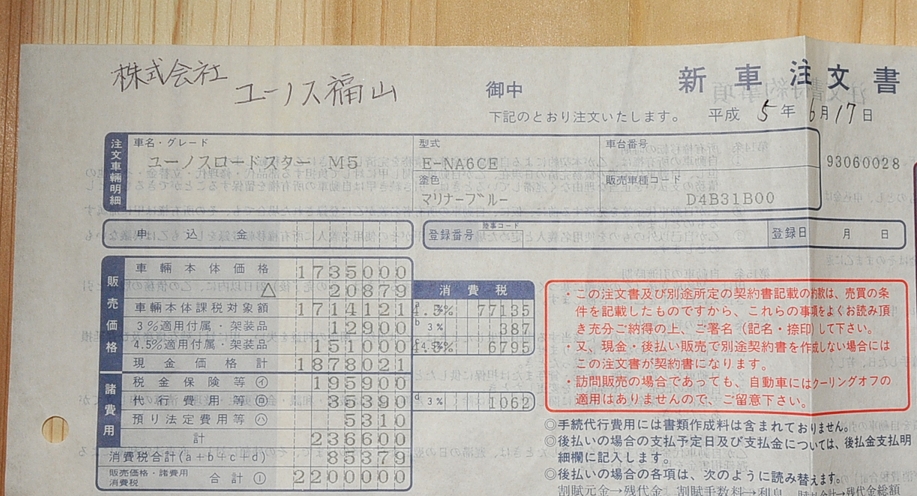 株式会社
ユーノス福山 御中
新車注文書
下記のとおり注文いたします。 平成 5年 6月17日
注文車輛明細
車名・グレード 型式 車台番号
ユーノスロードスター M5 E-NA6CE 93060028
塗色 販売車種コード
マリナーブルー D4B31B00
申込金 登録番号 陸事コード 登録日 月 日
販売価格
車輛本体価格 1735000
△ 20879 消費税
車輛本体課税対象額 1714121 a 4.5% 77135
3%適用付属・架装品 12900 b 3% 387
4.5%適用付属・架装品 151000 c 4.5% 6795
現金価格計 1878021
諸費用
税金保険等㋑ 195900
代行費用等㋺ 35390 d 3% 1062
預り法定費用等㋩ 5310
計 236600
消費税合計(a+b+c+d) 85379
販売価格・諸費用
消費税 合計① 2200000
・この注文書及び別途所定の契約書記載の約款は、売買の条
件を記載したものですから、これらの事項をよくお読み頂
き充分ご納得の上、ご署名(記名・捺印)して下さい。
・又、現金・後払い販売で別途契約書を作成しない場合には
この注文書が契約書になります。
・訪問販売の場合であっても、自動車にはクーリングオフの
適用はありませんので、ご留意下さい。
◎手続代行費用には書類作成料は含まれておりません。
◎後払いの場合の支払予定日及び支払金については、後払金支払明
細欄に記入します。
◎後払いの場合の各項は、次のように読み替えます。
割賦元金→残代金 割賦手数料→利息